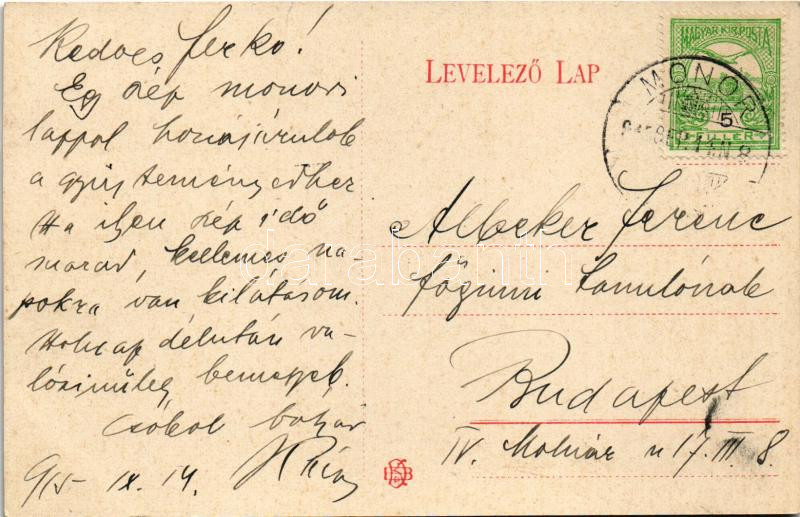 Kedves Ferkó!
Egy szép monori
lappal hozzájárulok
a gyüjteményedhez
Ha ilyen szép idő
marad, kellemes na-
pokra van kilátásom.
Holnap délután va-
lószinüleg bemegyek.
Csókol bátyád
915 IX. 14.
LEVELEZŐ LAP
MAGYAR KIR. POSTA
5
MONOR
Albeker Ferenc
főgimn tanulónak
Budapest
IV. Molnár u 17. III. 8.
darabanth